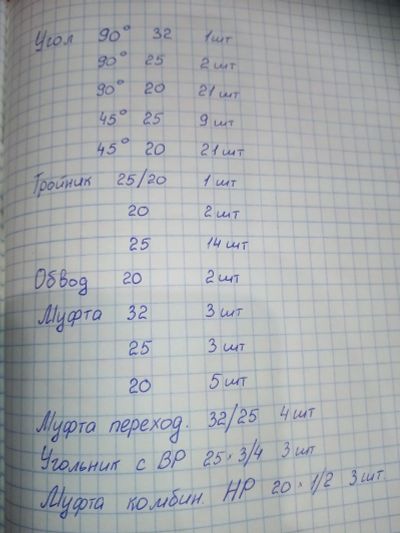 Угол 90° 32 1 шт
90° 25 2 шт
90° 20 21 шт
45° 25 9 шт
45° 20 21 шт
Тройник 25/20 1 шт
20 2 шт
25 14 шт
Обвод 20 2 шт
Муфта 32 3 шт
25 3 шт
20 5 шт
Муфта переход. 32/25 4 шт
Угольник с ВР 25 × 3/4 3 шт
Муфта комбин. НР 20 × 1/2 3 шт.